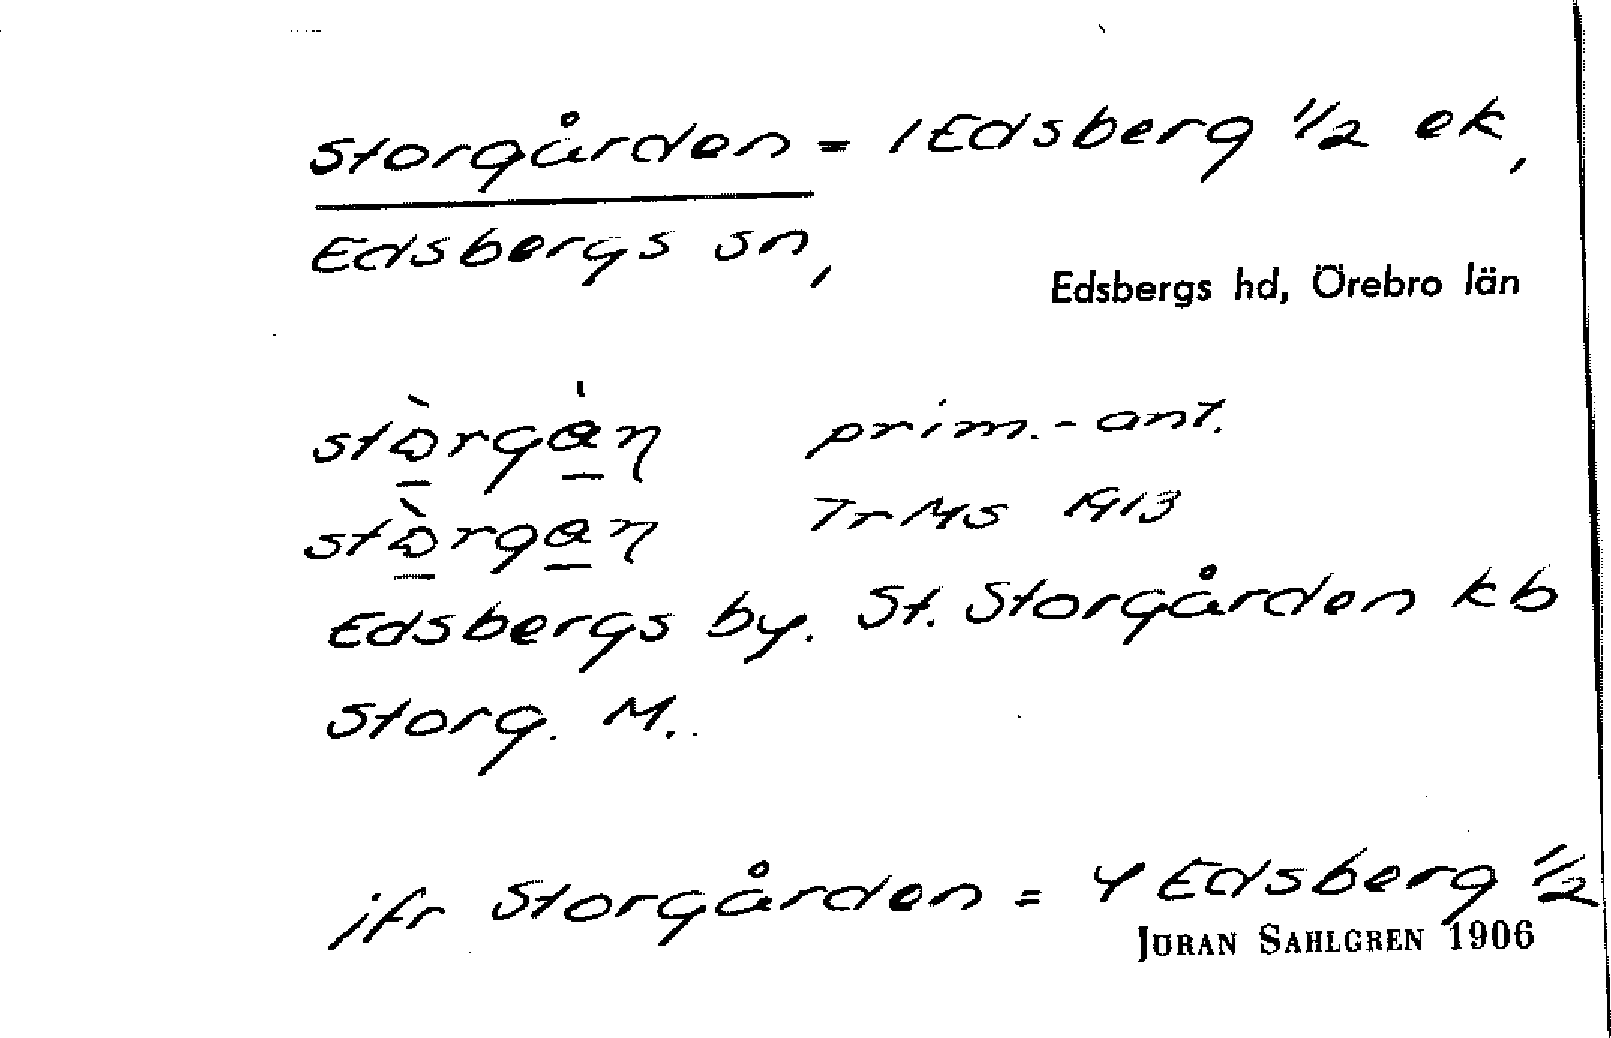 Storgården = 1 Edsberg 1/2 ek,
Edsbergs sn,
Edsbergs hd, Örebro län
prim.-ant.
TrMS 1913
Edsbergs by. St. Storgården kb
Storg. M.
jfr Storgården = 4 Edsberg 1/2
JÖRAN SAHLGREN 1906